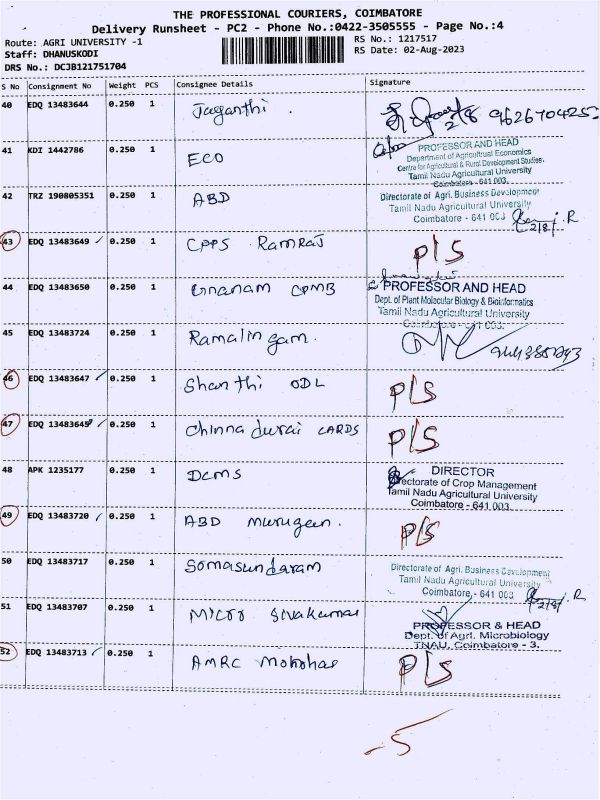 THE PROFESSIONAL COURIERS, COIMBATORE
Delivery Runsheet - PC2 - Phone No.:0422-3505555 - Page No.:4
Route: AGRI UNIVERSITY -1
RS No.: 1217517
Staff: DHANUSKODI
RS Date: 02-Aug-2023
DRS No.: DCJB121751704
S No Consignment No Weight PCS Consignee Details Signature
40 EDQ 13483644 0.250 1 Jaganthi.
41 KDI 1442786 0.250 1 ECO
PROFESSOR AND HEAD
Department of Agricultural Economics
Centre for Agricultural & Rural Development Studies.
Tamil Nadu Agricultural University
Coimbatore - 641 003.
42 TRZ 190805351 0.250 1 ABD
Directorate of Agri. Business Development
Tamil Nadu Agricultural University
Coimbatore - 641 003
R
2/8/
43 EDQ 13483649 0.250 1 CPPS Ramraj P/S
44 EDQ 13483650 0.250 1 Gnanam CPMB
PROFESSOR AND HEAD
Dept. of Plant Molecular Biology & Bioinformatics
Tamil Nadu Agricultural University
Coimbatore - 641 003.
45 EDQ 13483724 0.250 1 Ramalingam.
46 EDQ 13483647 0.250 1 Shanthi ODL P/S
47 EDQ 1348364 0.250 1 Chinnadurai CARDS P/S
48 APK 1235177 0.250 1 DCMS
DIRECTOR
Directorate of Crop Management
Tamil Nadu Agricultural University
Coimbatore - 641 003.
49 EDQ 13483720 0.250 1 ABD Murugan. P/S
50 EDQ 13483717 0.250 1 Somasundaram
Directorate of Agri. Business Development
Tamil Nadu Agricultural University
Coimbatore, - 641 003
R
2/8/
51 EDQ 13483707 0.250 1 Micro Sivakumar
PROFESSOR & HEAD
Dept. of Agrl. Microbiology
TNAU, Coimbatore - 3.
52 EDQ 13483713 0.250 1 AMRC Mohohar P/S
-5